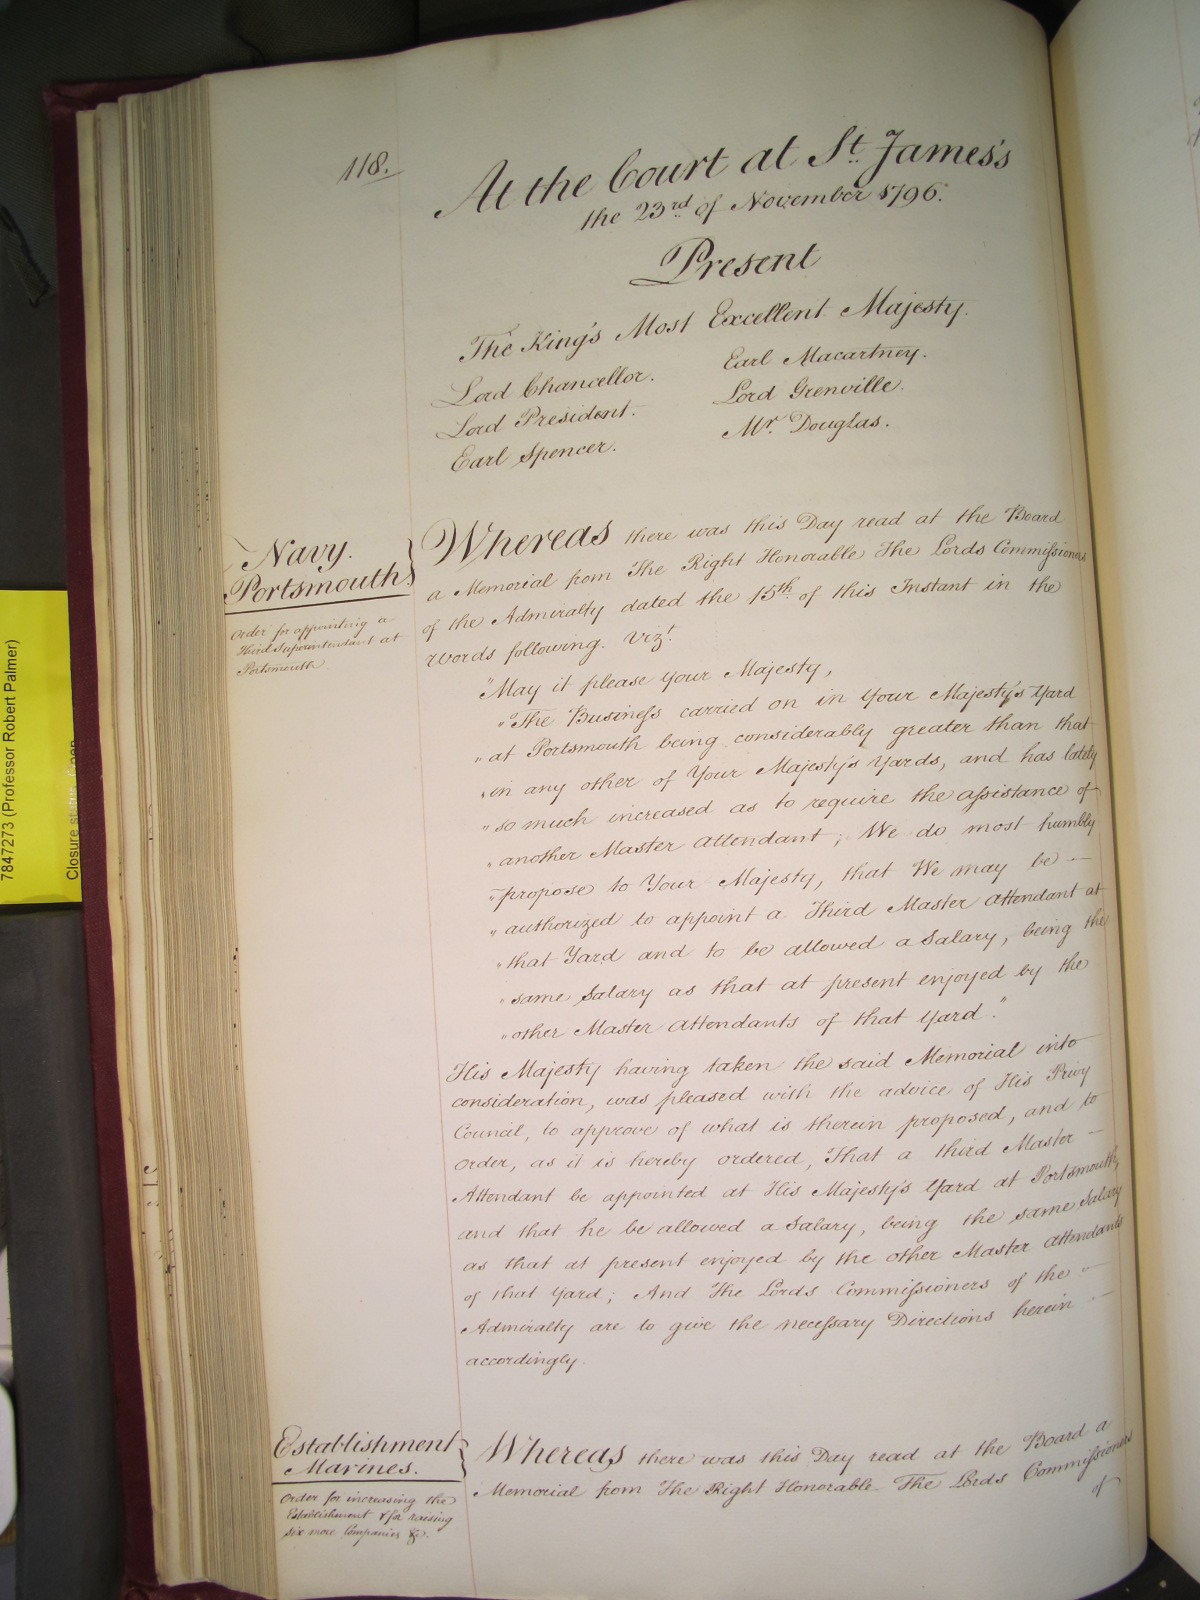 118.
At the Court at St. James's
the 23rd of November 1796.
Present
The King's Most Excellent Majesty.
Lord Chancellor.
Lord President.
Earl Spencer.
Earl Macartney.
Lord Grenville.
Mr. Douglas.
Navy.
Portsmouth
Order for appointing a
Third Superintendant at
Portsmouth
Whereas there was this Day read at the Board
a Memorial from The Right Honorable The Lords Commissioners
of the Admiralty dated the 15th of this Instant in the
Words following. Vizt.
"May it please your Majesty,
"The Business carried on in Your Majesty's Yard
"at Portsmouth being considerably greater than that
"in any other of Your Majesty's Yards, and has lately
"so much increased as to require the assistance of
"another Master Attendant; We do most humbly
"propose to Your Majesty, that We may be —
"authorized to appoint a Third Master Attendant at
"that Yard and to be allowed a Salary, being the
"same Salary as that at present enjoyed by the
"other Master Attendants of that Yard."
His Majesty having taken the said Memorial into
consideration, was pleased with the advice of His Privy
Council, to approve of what is therein proposed, and to
order, as it is hereby ordered, That a third Master —
Attendant be appointed at His Majesty's Yard at Portsmouth,
and that he be allowed a Salary, being the same Salary
as that at present enjoyed by the other Master Attendants
of that Yard; And The Lords Commissioners of the —
Admiralty are to give the necessary Directions herein —
accordingly.
Establishment
Marines.
Order for increasing the
Establishment & for raising
six more Companies &c.
Whereas there was this Day read at the Board a
Memorial from The Right Honorable The Lords Commissioners
of
7847273 (Professor Robert Palmer)
Closure status: Open